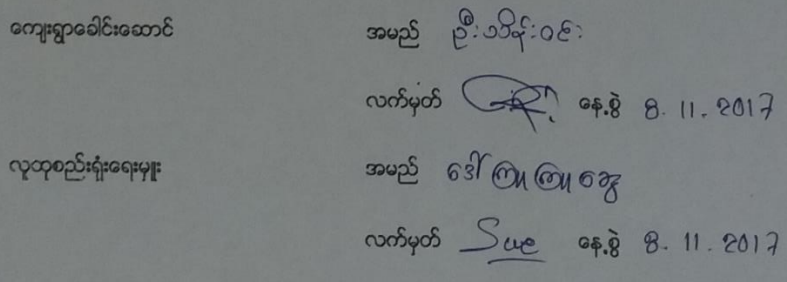 ကျေးရွာခေါင်းဆောင် အမည် ဦးသိန်းဝင်း
လက်မှတ် နေ့စွဲ 8.11.2017
လူထုစည်းရုံးရေးမှူး အမည် ဒေါ်ကြူကြူဆွေ
လက်မှတ် Sue နေ့စွဲ 8.11.2017